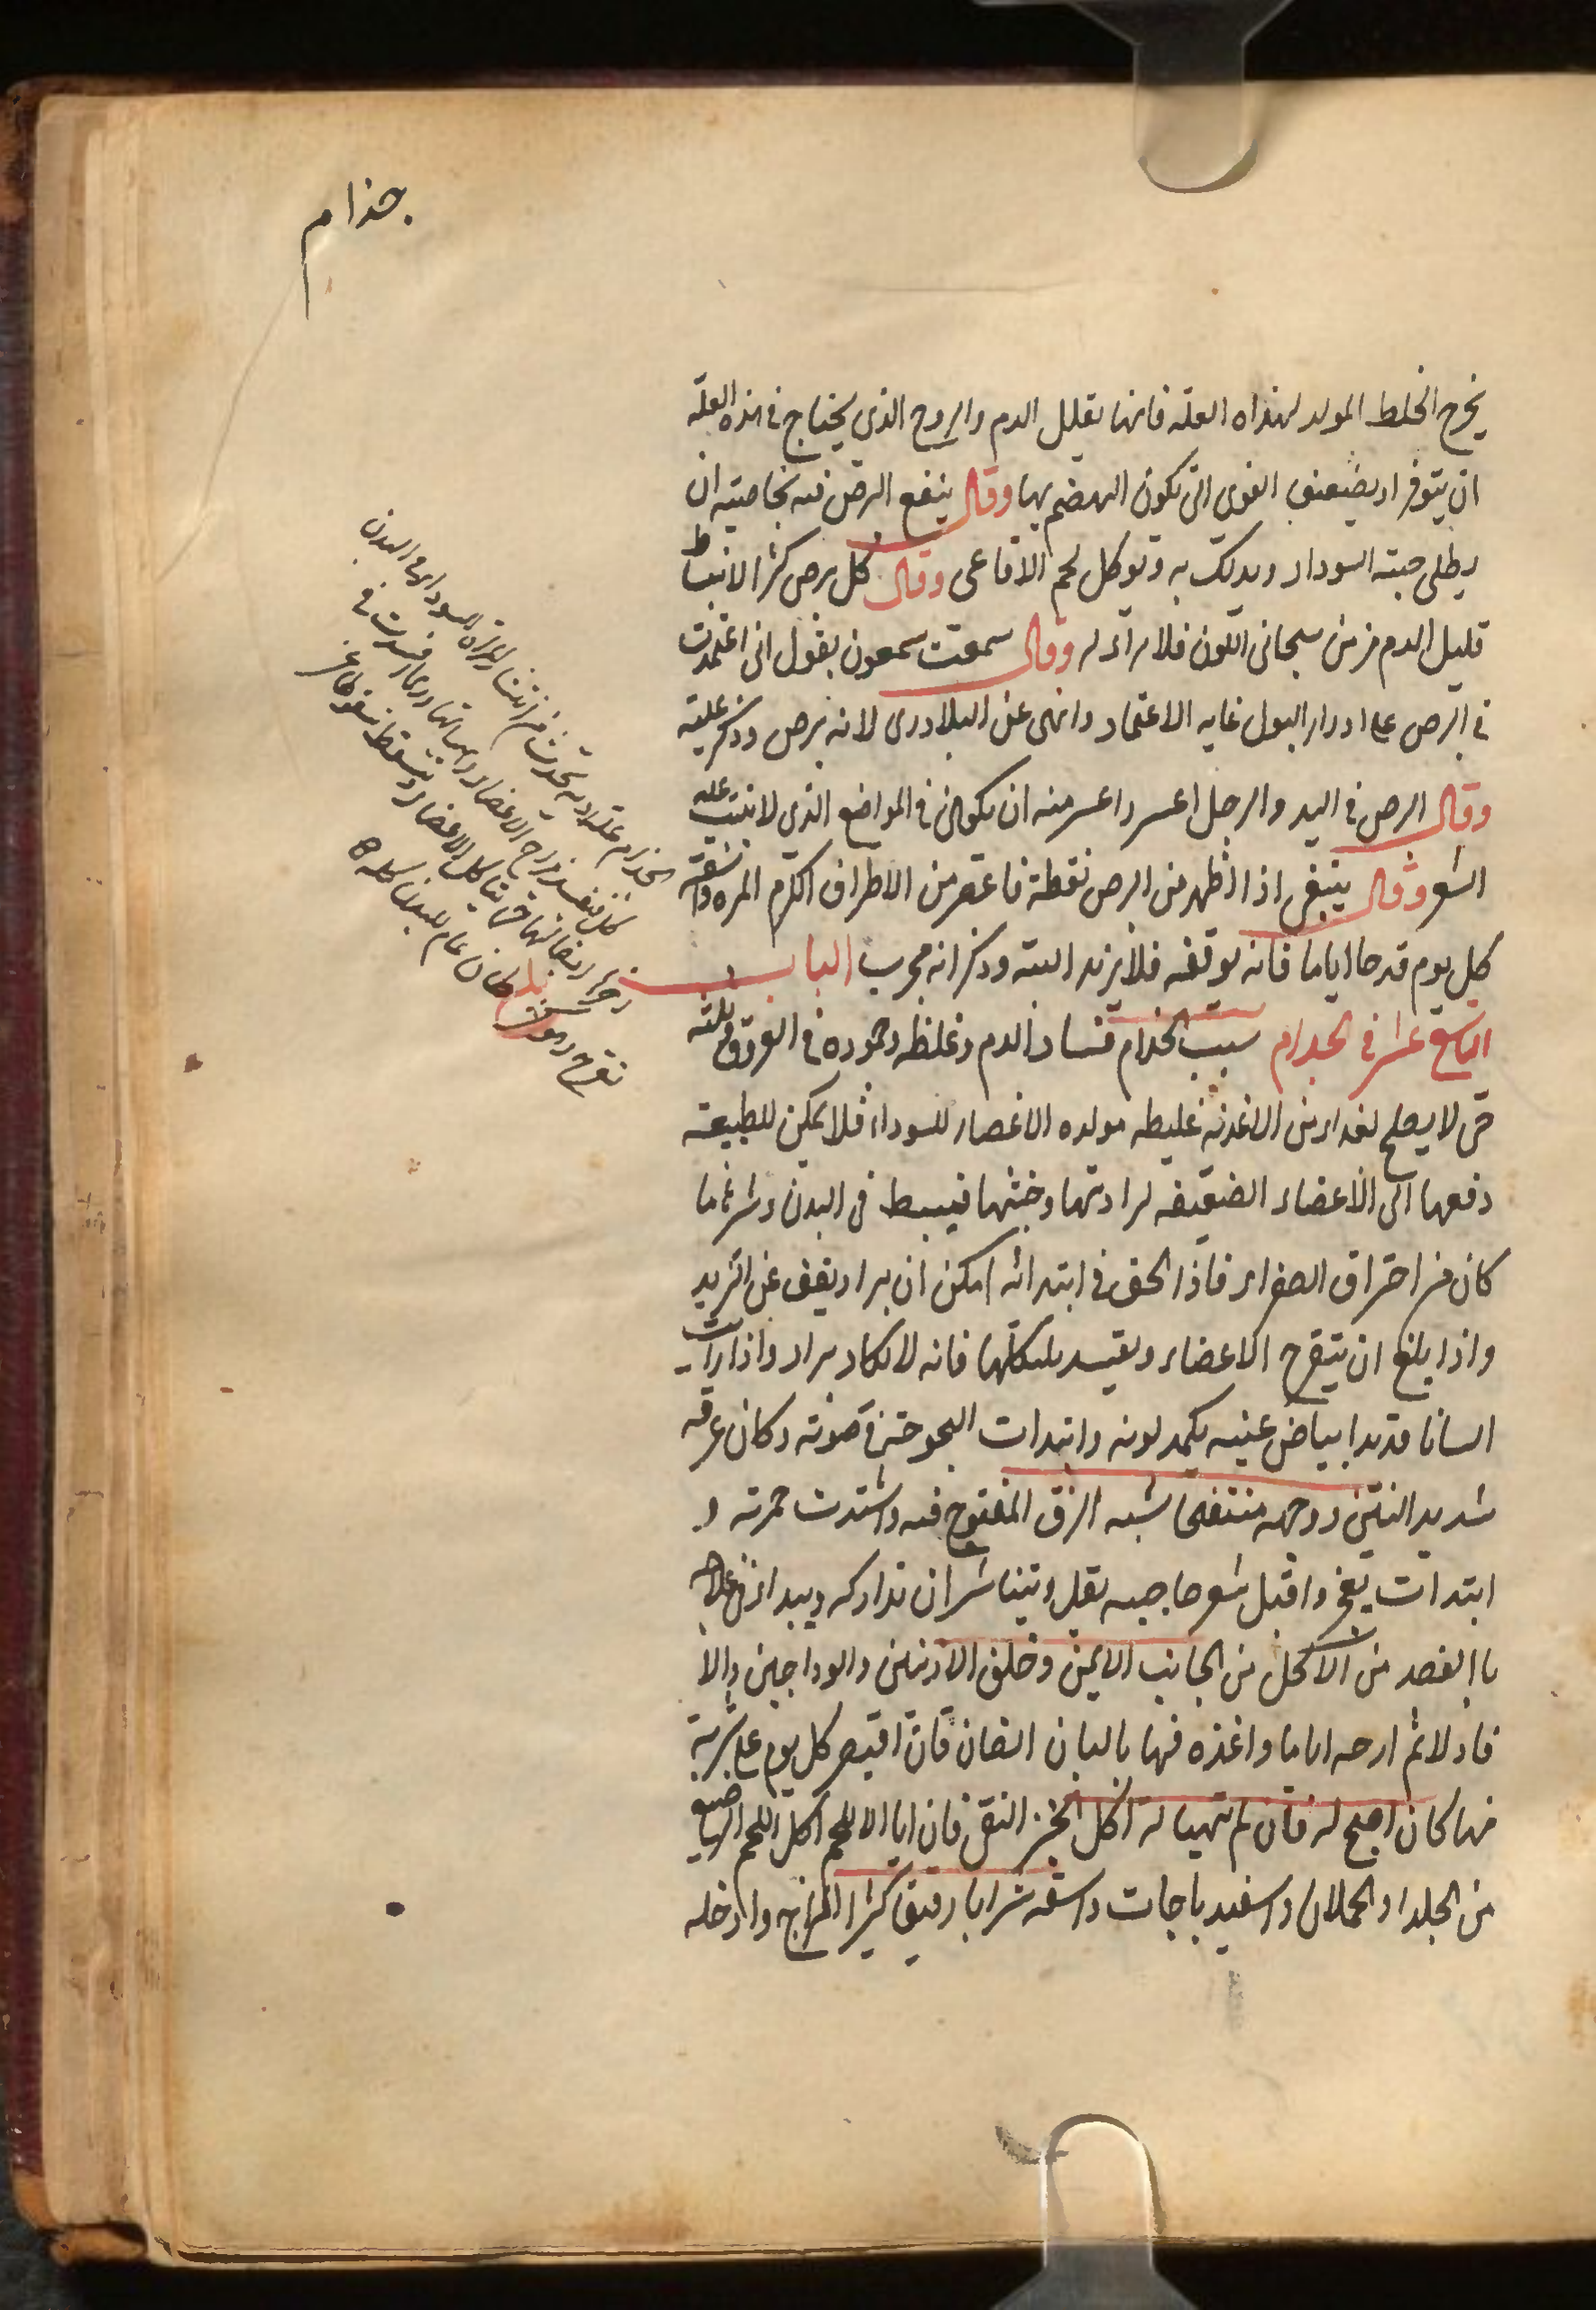 جذام
يخرج الخلط المولد لهذاه العله فانها تقلل الدم والروح الذي يحتاج في هذه العلة
ان يتوفر او يضيعف القوي التي تكون الهضم بها وقال ينفع البرص فيه بخاصيته ان
يطلى حبته السوداء ويدلك به ويوكل لحم الافاعى وقال كل برص كثر الانبساط
قليل الدم مزمن سجانى اللون فلا براء له وقال سمعت سمعون يقول انى اعتمدت
في البرص على ادرار البول غايه الاعتماد وانهى عن البلادرى لانه برص وذكر عليه
وقال البرص في اليد والرجل اعسر واعسر منه ان يكوان في المواضع الذي لا تنبت عليه
الشعر وقال ينبغى اذا اظهر من البرص نقطة فاعصر من الاطراف الكرم المره واسقه
كل يوم قدحا اياما فانه يوقفه فلا يزيد البته وذكر انه مجرب الباب
التاسع عشر في الجذام سبب الجذام فساد الدم وغلظه وجموده في العروق
حتى لا يصلح لغداء من الاغذيه غليطه مولده الاعصار للسوداء فلا يمكن للطبيعه
دفعها الى الاعضاء الضعيفه لرادتها وخبثها فيبسط في البدن وشرها ما
كان من احتراق الصفراء فاذا لحق في ابتدائه امكن ان يبرا او يقف عن التزيد
واذا بلغ ان يتقرح الاعضاء ويفسد فانه لا يكاد يبراء واذا رايت
انسانا قد بدا بياض عينيه يكمد لونه وابتدات البحوحة في صوته وكان عرقه
شديد النتن ووجهه منتفخا شبه الزق المنفوخ فيه واشتدت حمرته و
ابتدات يقح واقبل شعر حاجبيه يقل ويتناثر ان تداركه ويبداء في علاجه
باالفصد من الاكحل من الجانب الايمن وخلف الاذنين والوداجين والا
فاولا ثم ارحه اياما واغذه فيها بالبان الضان فان اقتصر كل يوم على شربة
منها كان اصح له فان لم تتهيا له اكل الخبز النقى فان ابا الا للحم اكل اللحم الرضيع
من الجداء والحملان واسفيد باجات واسقه شرابا رقيق كثير المزاج وادخله
الجذام علة رديه تحدث من انتشار المرة السوداء في البدن
كله فيفسد مزاج الاعضاء وهياتها وربما فسدت في
اخره اتصالها حتى يتاكل الاعضاء ويسقط سقوطا عن
تقرح وهو كسرطان عام للبدن كله